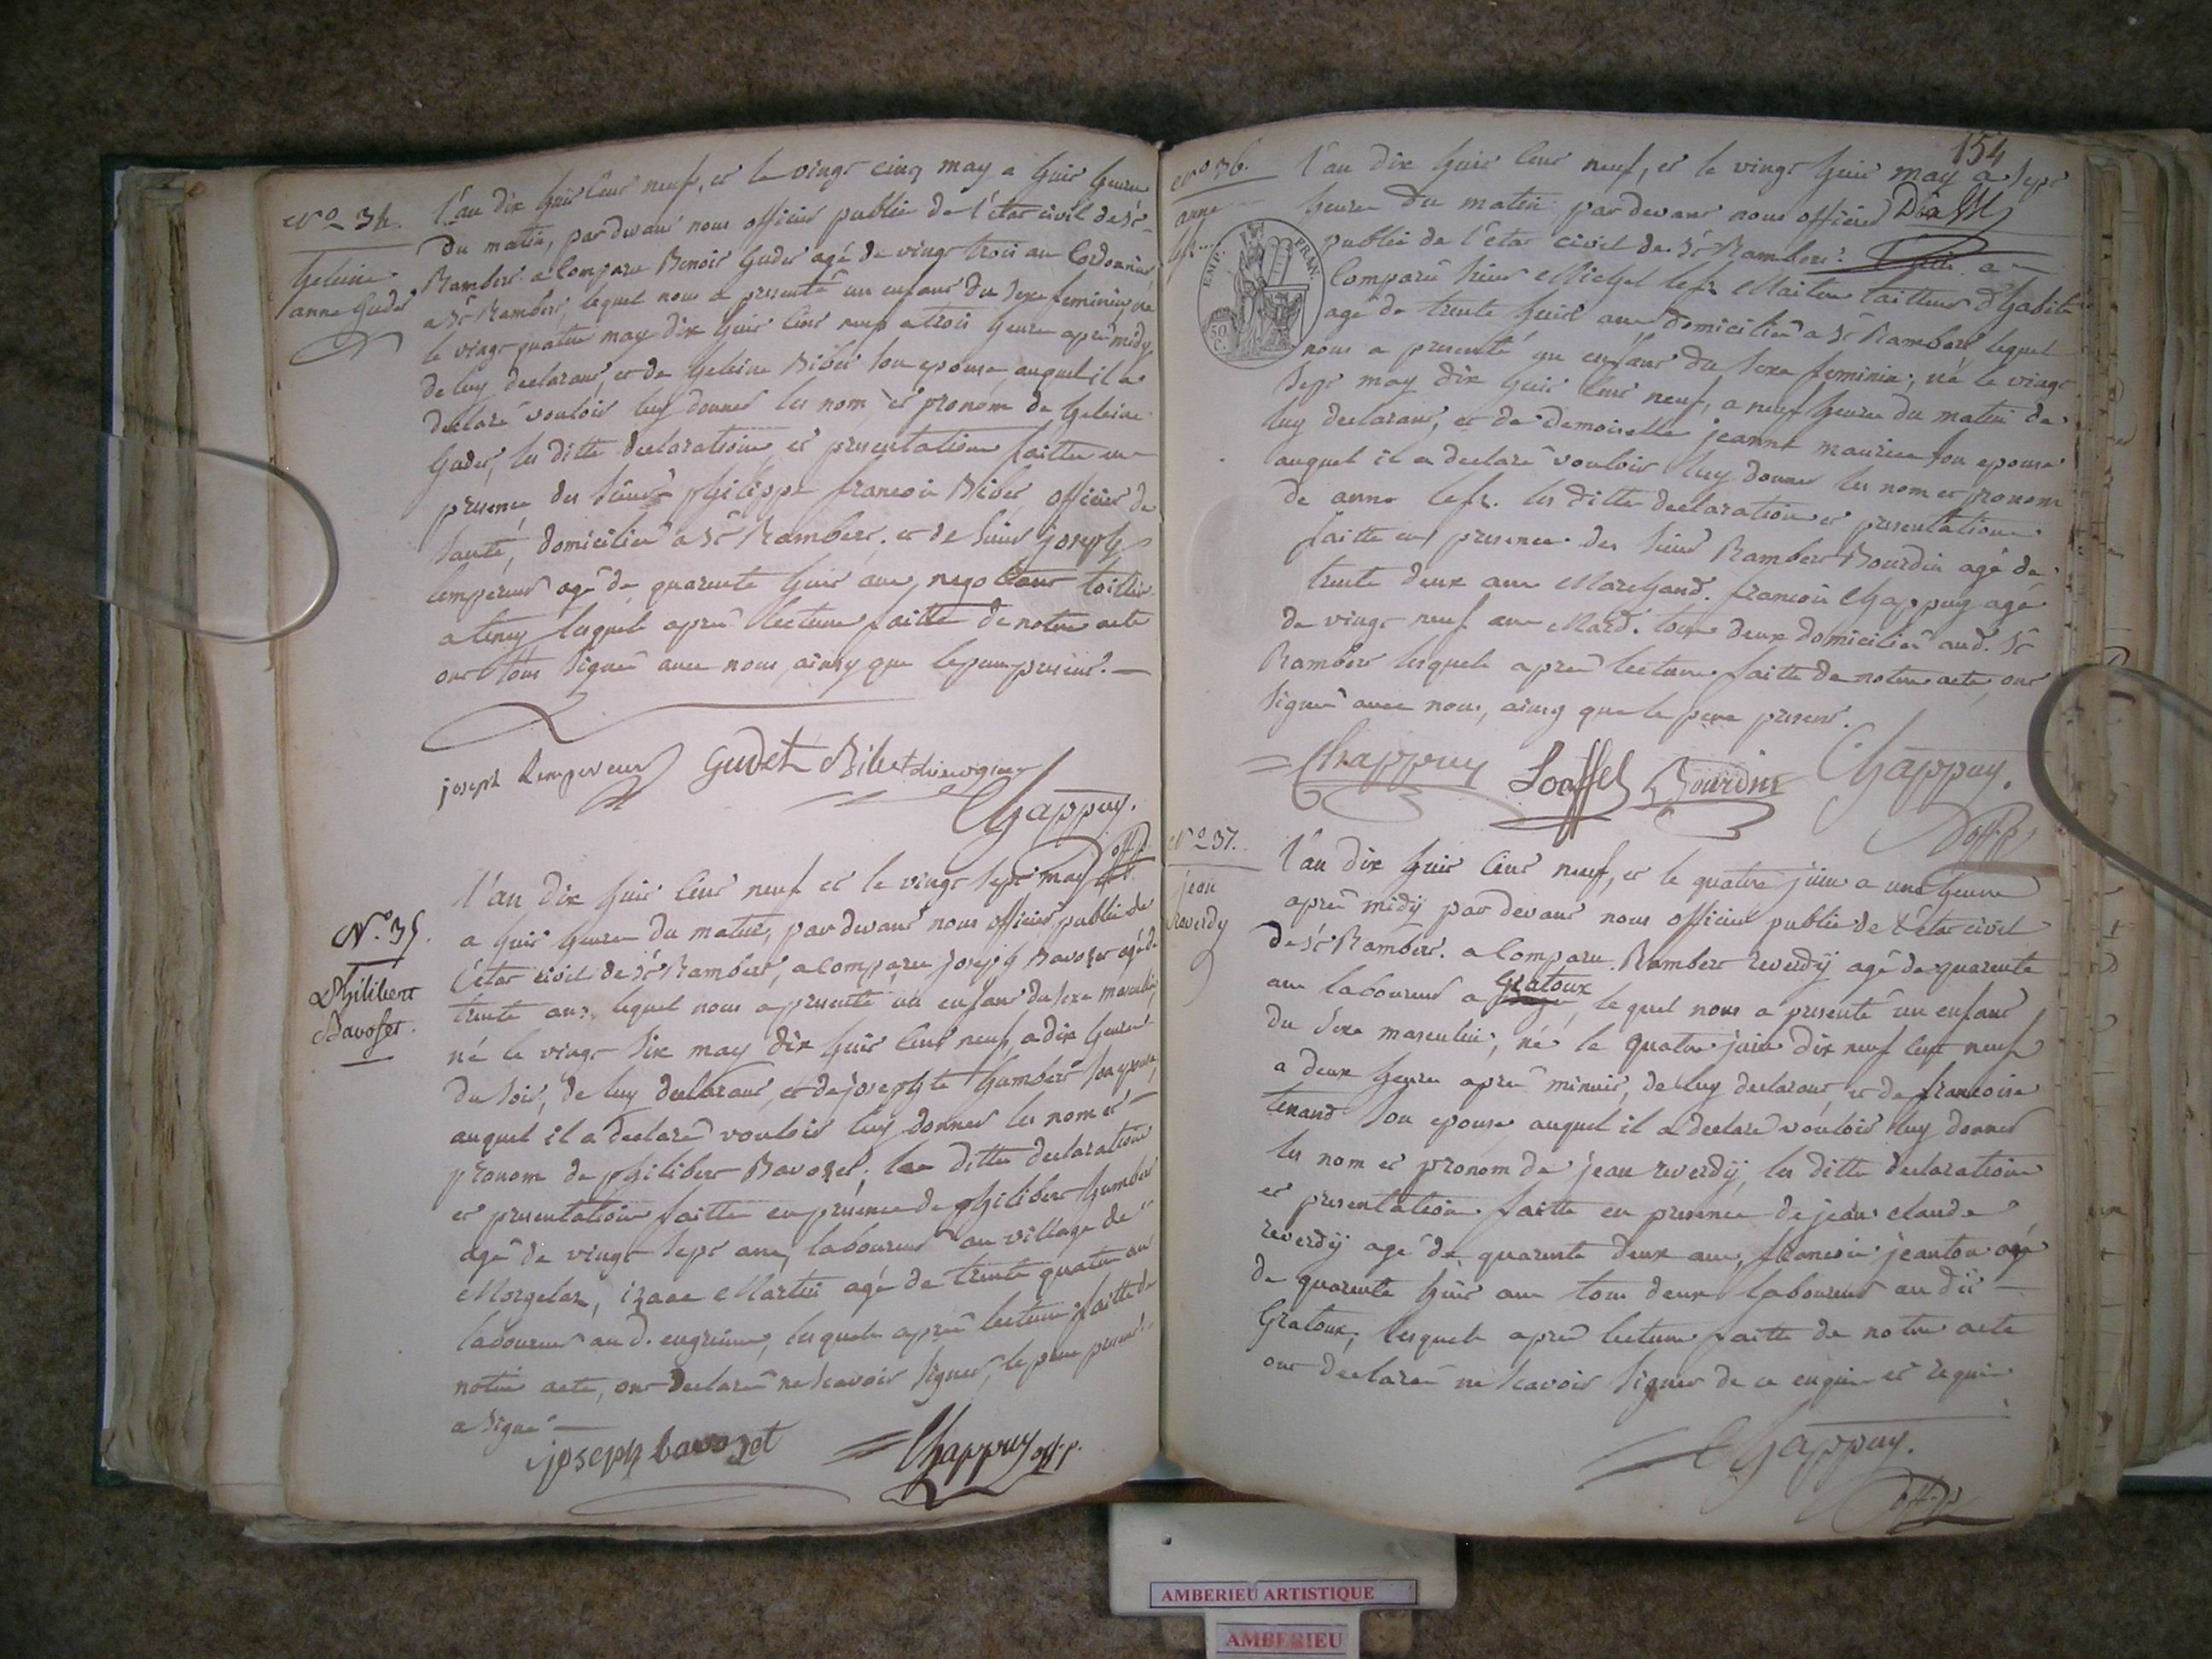 N.o 34.
heleine
anne Gudet
l'an dix huit cent neuf, et le vingt cinq may a huit heure
du matin, par devant nous officier public de l'état civil de St
Rambert a comparu Benoit Gudet agé de vingt trois ans Cordonnier
a St Rambert, lequel nous a presenté un enfant du sexe feminin, né
le vingt quatre may dix huit cent neuf a trois heure après midy
de luy declarant, et de heleine Bibet son epouse, auquel il a
declaré vouloir luy donner les nom et pronom de heleine
Gudet, les ditte declaration et presentation faitte en
presence des sieurs philippe francois Bibet officier de
santé, domicilié a St Rambert. et de sieur joseph
lempereur agé de quarente huit ans, negotiant toillier
a tenay lesquel après lecture faitte de notre acte
ont tous signé avec nous, ainsy que le pere present.
joseph Lempereur Gudet Bibet
Chappuy.
off. p.
N.o 35.
Philibert
Bavozet.
l'an dix huit cent neuf et le vingt sept may
a huit heure du matin, par devant nous officier public de
l'état civil de St Rambert, a comparu joseph Bavozet agé de
trente ans, lequel nous a presenté un enfant du sexe masculin,
né le vingt six may dix huit cent neuf, a dix heure
du soir, de luy declarant, et de josephte humbert son epouse,
auquel il a declaré vouloir luy donner les nom et
pronom de philibert Bavozet, les ditte declaration
et presentation faitte en présence de philibert humbert
agé de vingt sept ans, laboureur au village de
Morgelas, izaac Martin agé de trente quatre an
laboureur au d. lesquels après lecture faitte de
notre acte, ont declaré ne scavoir signer, le pere present
a signé
joseph bavozet Chappuy off. p.
154
N.o 36.
anne
EMP. FRAN.
50 C.
l'an dix huit cent neuf, et le vingt huit may a sept
heure du matin par devant nous officier
public de l'état civil de St Rambert. a
comparu sieur Michel Maitre tailleur d'habits
agé de trente huit ans domicilié a St Rambert lequel
nous a presenté un enfant du sexe feminin, né le vingt
sept may dix huit cent neuf, a neuf heure du matin de
luy declarant, et de demoiselle jeanne maurice son epouse
auquel il a declaré vouloir luy donner les nom et pronom
de anne les ditte declaration et presentation
faitte en presence des sieurs Rambert Bourdin agé de
trente deux ans Marchand. francois Chappuy agé
de vingt neuf ans Mard. tous deux domicilié aud. St
Rambert lesquels après lecture faitte de notre acte, ont
signé avec nous, ainsy que le pere present.
Chappuy Loaffel Bourdin Chappuy.
off. p.
N.o 37.
jean
Reverdy
l'an dix huit cent neuf, et le quatre juin a une heure
après midy par devant nous officier public de l'état civil
de St Rambert. a comparu Rambert reverdy agé de quarente
ans laboureur a Gratoux, lequel nous a presenté un enfant
du sexe masculin, né le quatre juin dix neuf cent neuf
a deux heure après minuit, de luy declarant et de francoise
tenand son epouse auquel il a declaré vouloir luy donner
les nom et pronom de jean reverdy, les ditte declaration
et presentation faitte en presence de jean claude
reverdy agé de quarente deux ans, francois jeanton agé
de quarente huit ans tous deux laboureur au dit
Gratoux, lesquels après lecture faitte de notre acte
ont declaré ne scavoir signer de ce enquis et requis
Chappuy.
off. p.
AMBERIEU ARTISTIQUE
AMBERIEU